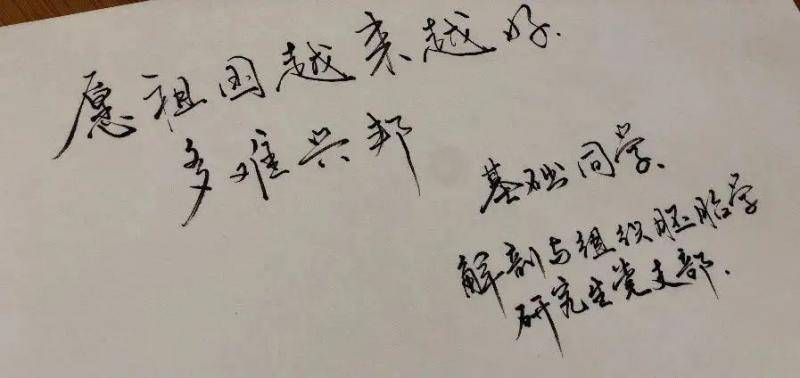 愿祖国越来越好.
多难兴邦
基础同学、
解剖与组织胚胎学
研究生党支部.